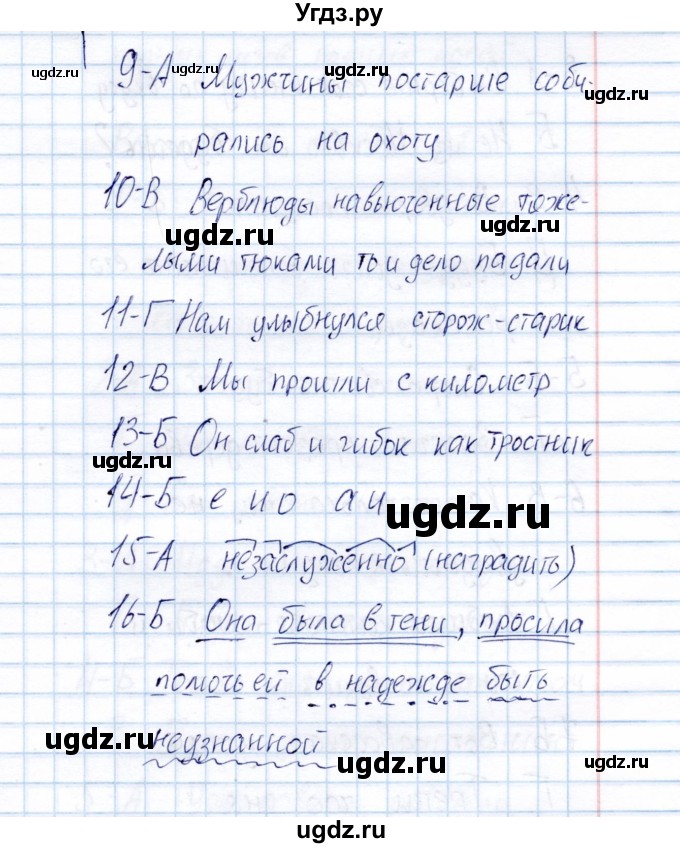 Угдз.ру
9-А Мужчины постарше соби-
рались на охоту
10-В Верблюды навьюченные тяже-
лыми тюками то и дело падали
11-Г Нам улыбнулся сторож-старик
12-В Мы прошли с километр
13-Б Он слаб и гибок как тростник
14-Б е и о а и
15-А незаслуженно (наградить)
16-Б Она была в тени, просила
помочь ей в надежде быть
неузнанной
ugdz.ru
ugdz.ru
ugdz.ru
ugdz.ru
ugdz.ru
ugdz.ru
ugdz.ru
ugdz.ru
ugdz.ru
ugdz.ru
ugdz.ru
ugdz.ru
ugdz.ru